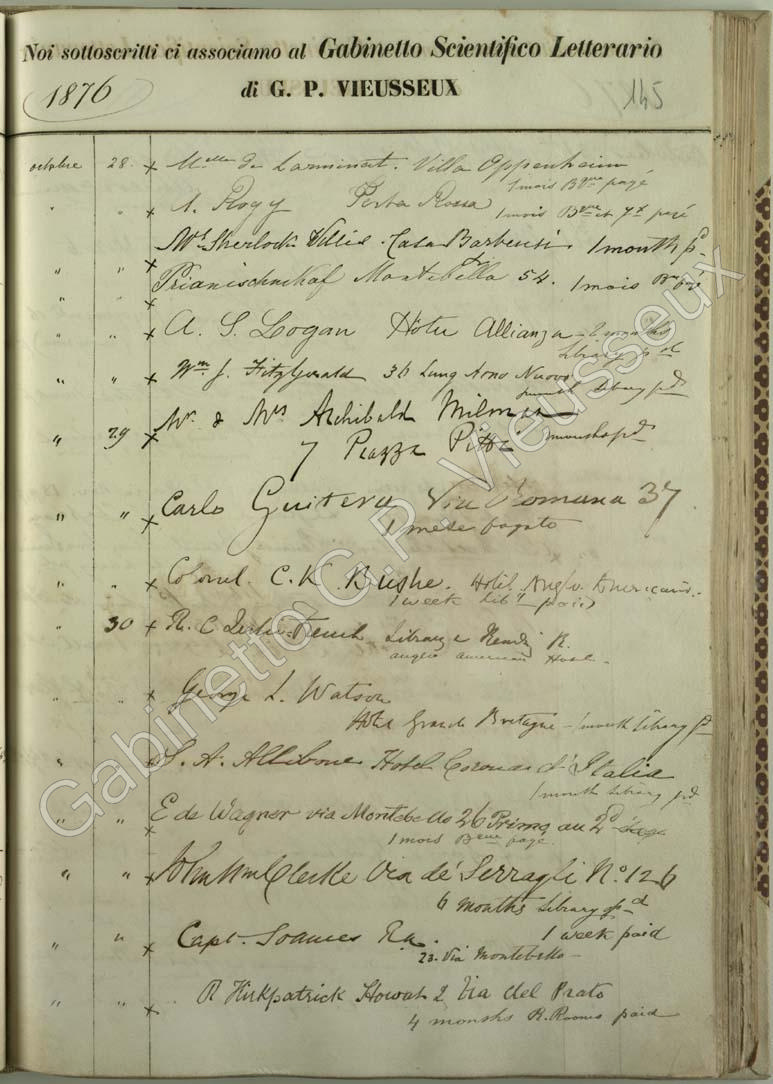 Noi sottoscritti ci associamo al Gabinetto Scientifico Letterario
di G. P. VIEUSSEUX
1876
145
octobre 28. x Melle de Larminat. Villa Oppenheim
1 mois Bque payé
" " x A. Porta Rossa
1 mois
x Mrs Sherlock Willis. Casa 1 month pd
" " x Prianischnikof Montebello 54. 1 mois
" " x A. S. Logan Hotel Allianza - 2 months
Library pd
" " x Wm J. FitzGerald 36 Lung Arno Nuovo
Library pd
" 29 x Mr & Mrs Archibald Milman
7 Piazza Pitti
" " x Carlo Via Romana 37
1 mese pagato
" " x Colonel C. K. Bushe. Hotel Anglo Americano.
1 week paid
" 30 x R. C. French
anglo american Hotel.
" " x George L. Watson
Hotel Grande Bretagne - 1 month Library pd
" " x S. A. Allibone Hotel Corona d'Italia
1 month Library pd
" " x E de Wagner via Montebello 26 Primo au 2d
1 mois Bque payé.
" " x John Wm Clerke Via de' Serragli No. 126
6 months Library pd
" " x Capt. Soames R.n. 1 week paid
23. Via Montebello -
" " x R Kirkpatrick Howat 2 Via del Prato
4 months R. Rooms paid
Gabinetto G. P. Vieusseux